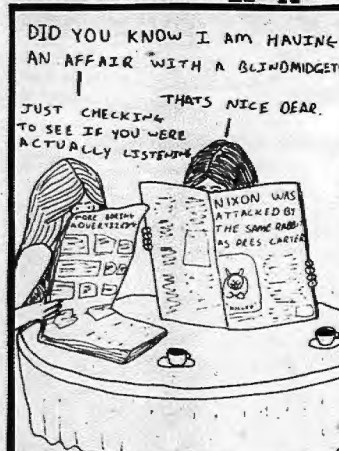 DID YOU KNOW I AM HAVING
AN AFFAIR WITH A BLINDMIDGET
THATS NICE DEAR.
JUST CHECKING
TO SEE IF YOU WERE
ACTUALLY LISTENING
MORE BORING
ADVERTISING
NIXON WAS
ATTACKED BY
THE SAME
AS PRES. CARTER